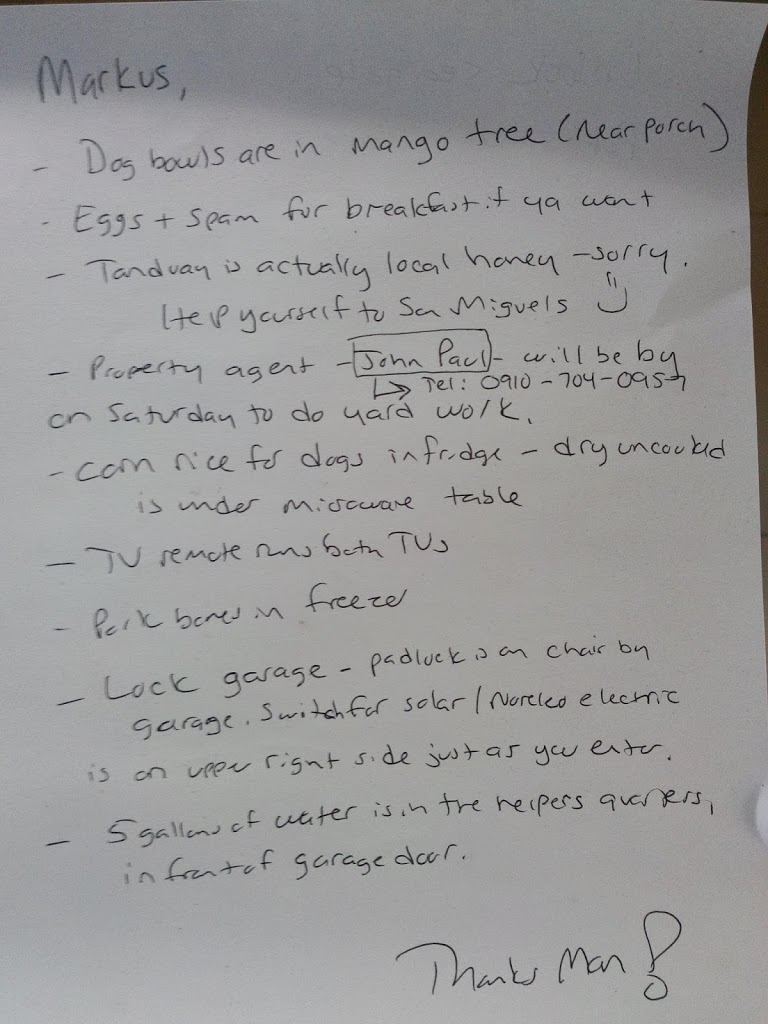 Markus,
- Dog bowls are in mango tree (near porch)
- Eggs + spam for breakfast if ya want
- Tanduay is actually local honey - sorry.
Help yourself to San Miguels
- Property agent - John Paul - will be by
Tel: 0910-704-0957
on Saturday to do yard work.
- corn rice for dogs in fridge - dry uncooked
is under microwave table
- TV remote runs both TVs
- Pork bones in freezer
- Lock garage - padlock is on chair by
garage. Switch for solar / Noreleo electric
is on upper right side just as you enter.
- 5 gallons of water is in the helpers quarters,
in front of garage door.
Thanks Man!